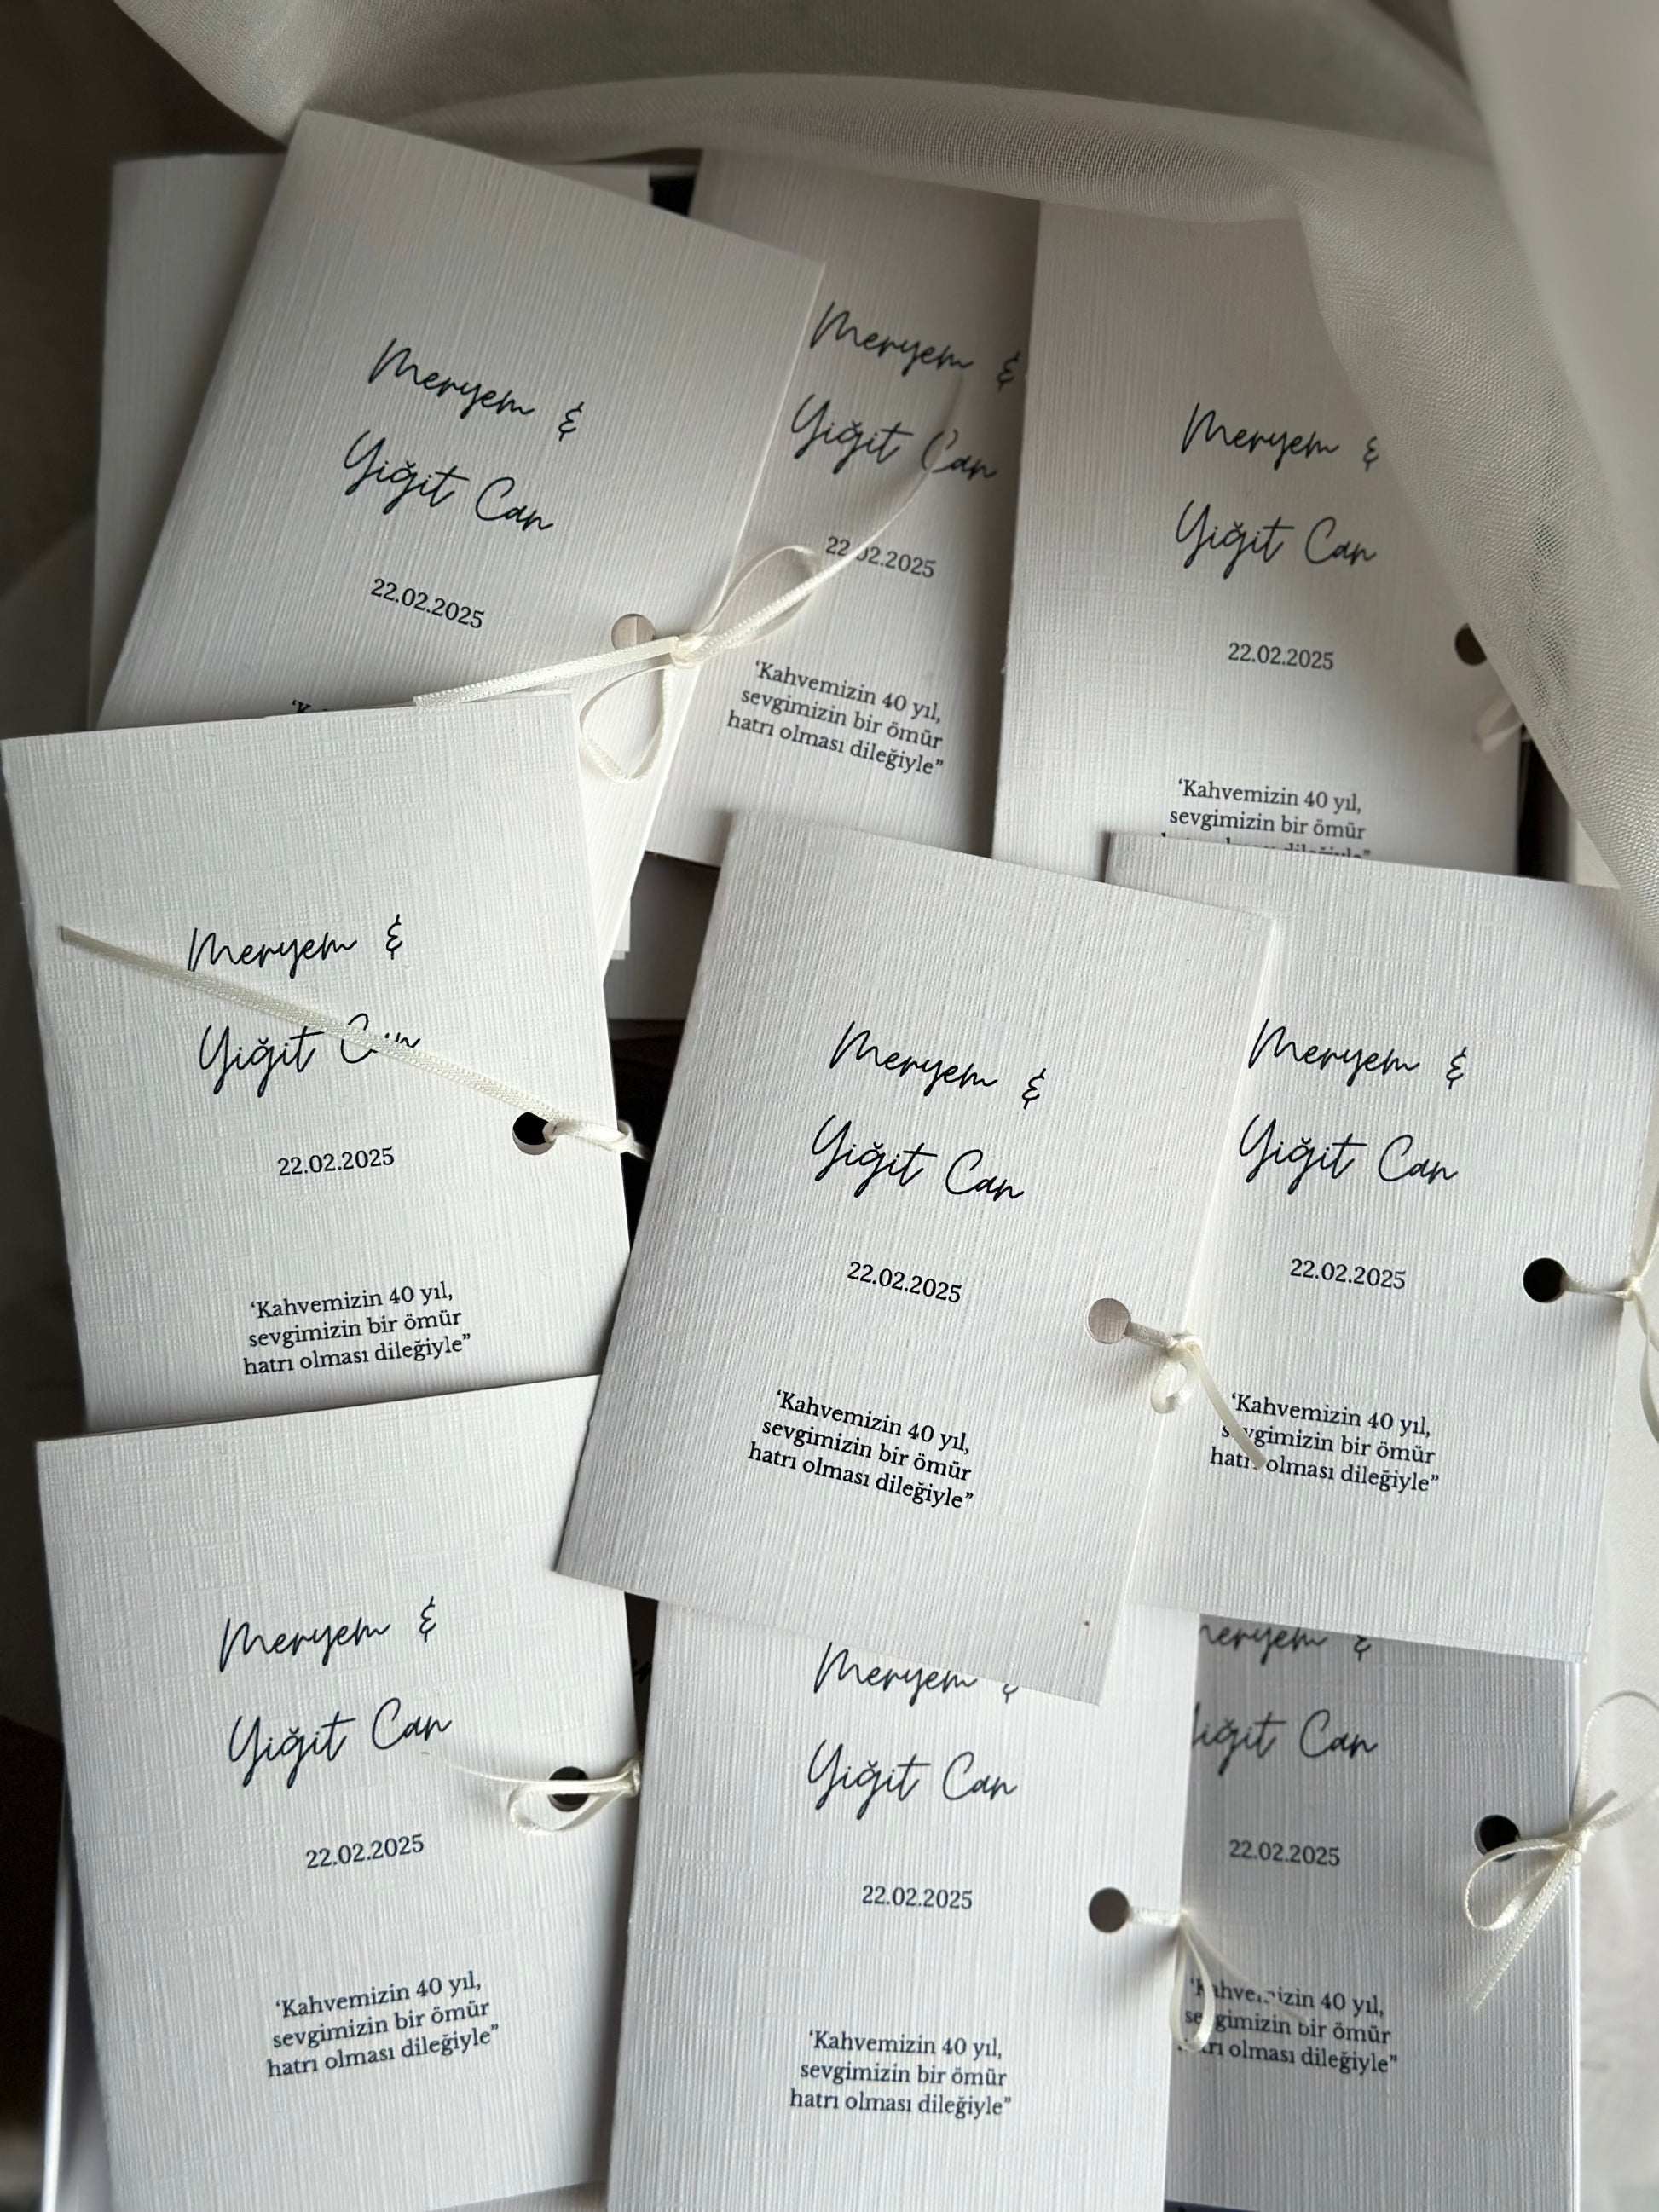 Meryem &
Yiğit Can
22.02.2025
Meryem &
Yiğit Can
22.02.2025
‘Kahvemizin 40 yıl,
sevgimizin bir ömür
hatrı olması dileğiyle”
Meryem &
Yiğit Can
22.02.2025
‘Kahvemizin 40 yıl,
sevgimizin bir ömür
dileğiyle”
Meryem &
Yiğit Can
22.02.2025
‘Kahvemizin 40 yıl,
sevgimizin bir ömür
hatrı olması dileğiyle”
Meryem &
Yiğit Can
22.02.2025
‘Kahvemizin 40 yıl,
sevgimizin bir ömür
hatrı olması dileğiyle”
Meryem &
Yiğit Can
22.02.2025
‘Kahvemizin 40 yıl,
sevgimizin bir ömür
hatrı olması dileğiyle”
Meryem &
Yiğit Can
22.02.2025
‘Kahvemizin 40 yıl,
sevgimizin bir ömür
hatrı olması dileğiyle”
Meryem &
Yiğit Can
22.02.2025
‘Kahvemizin 40 yıl,
sevgimizin bir ömür
hatrı olması dileğiyle”
Meryem &
Yiğit Can
22.02.2025
‘Kahvemizin 40 yıl,
sevgimizin bir ömür
hatrı olması dileğiyle”